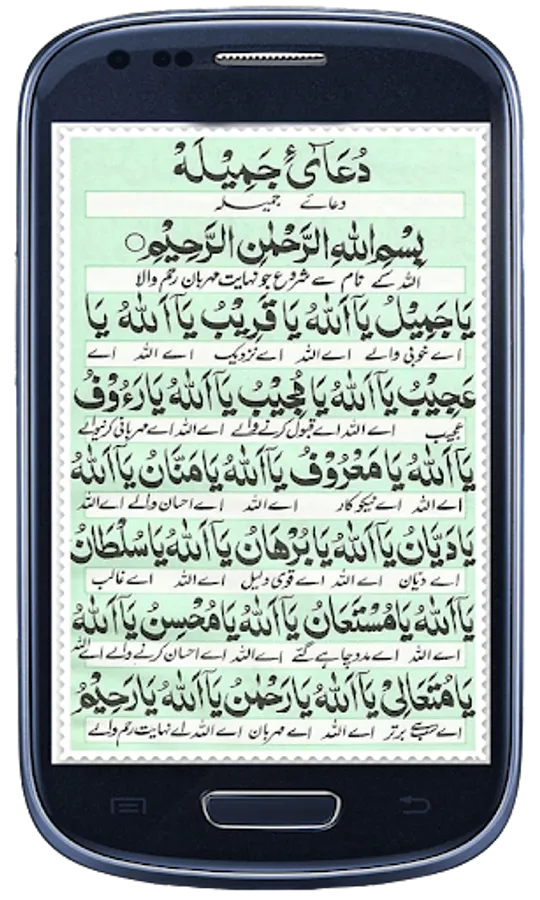 دُعَائے جَمِيْلَهْ
دعائے جمیلہ
بِسْمِ اللهِ الرَّحْمٰنِ الرَّحِيْمِ
اللہ کے نام سے شروع جو نہایت مہربان رحم والا
يَا جَمِيْلُ يَآ اَللهُ يَا قَرِيْبُ يَآ اَللهُ يَا
اے خوبی والے اے اللہ اے نزدیک اے اللہ اے
عَجِيْبُ يَآ اَللهُ يَا مُجِيْبُ يَآ اَللهُ يَا رَءُوْفُ
عجیب اے اللہ اے قبول کرنے والے اے اللہ اے مہربانی کرنیوالے
يَآ اَللهُ يَا مَعْرُوْفُ يَآ اَللهُ يَا مَنَّانُ يَآ اَللهُ
اے اللہ اے نیکوکار اے اللہ اے احسان والے اے اللہ
يَا دَيَّانُ يَآ اَللهُ يَا بُرْهَانُ يَآ اَللهُ يَا سُلْطَانُ
اے دیّان اے اللہ اے قوی دلیل اے اللہ اے غالب
يَآ اَللهُ يَا مُسْتَعَانُ يَآ اَللهُ يَا مُحْسِنُ يَآ اَللهُ
اے اللہ اے مدد چاہے گئے اے اللہ اے احسان کرنے والے اے اللہ
يَا مُتَعَالِىْ يَآ اَللهُ يَا رَحْمٰنُ يَآ اَللهُ يَا رَحِيْمُ
اے سب سے برتر اے اللہ اے مہربان اے اللہ اے نہایت رحم والے